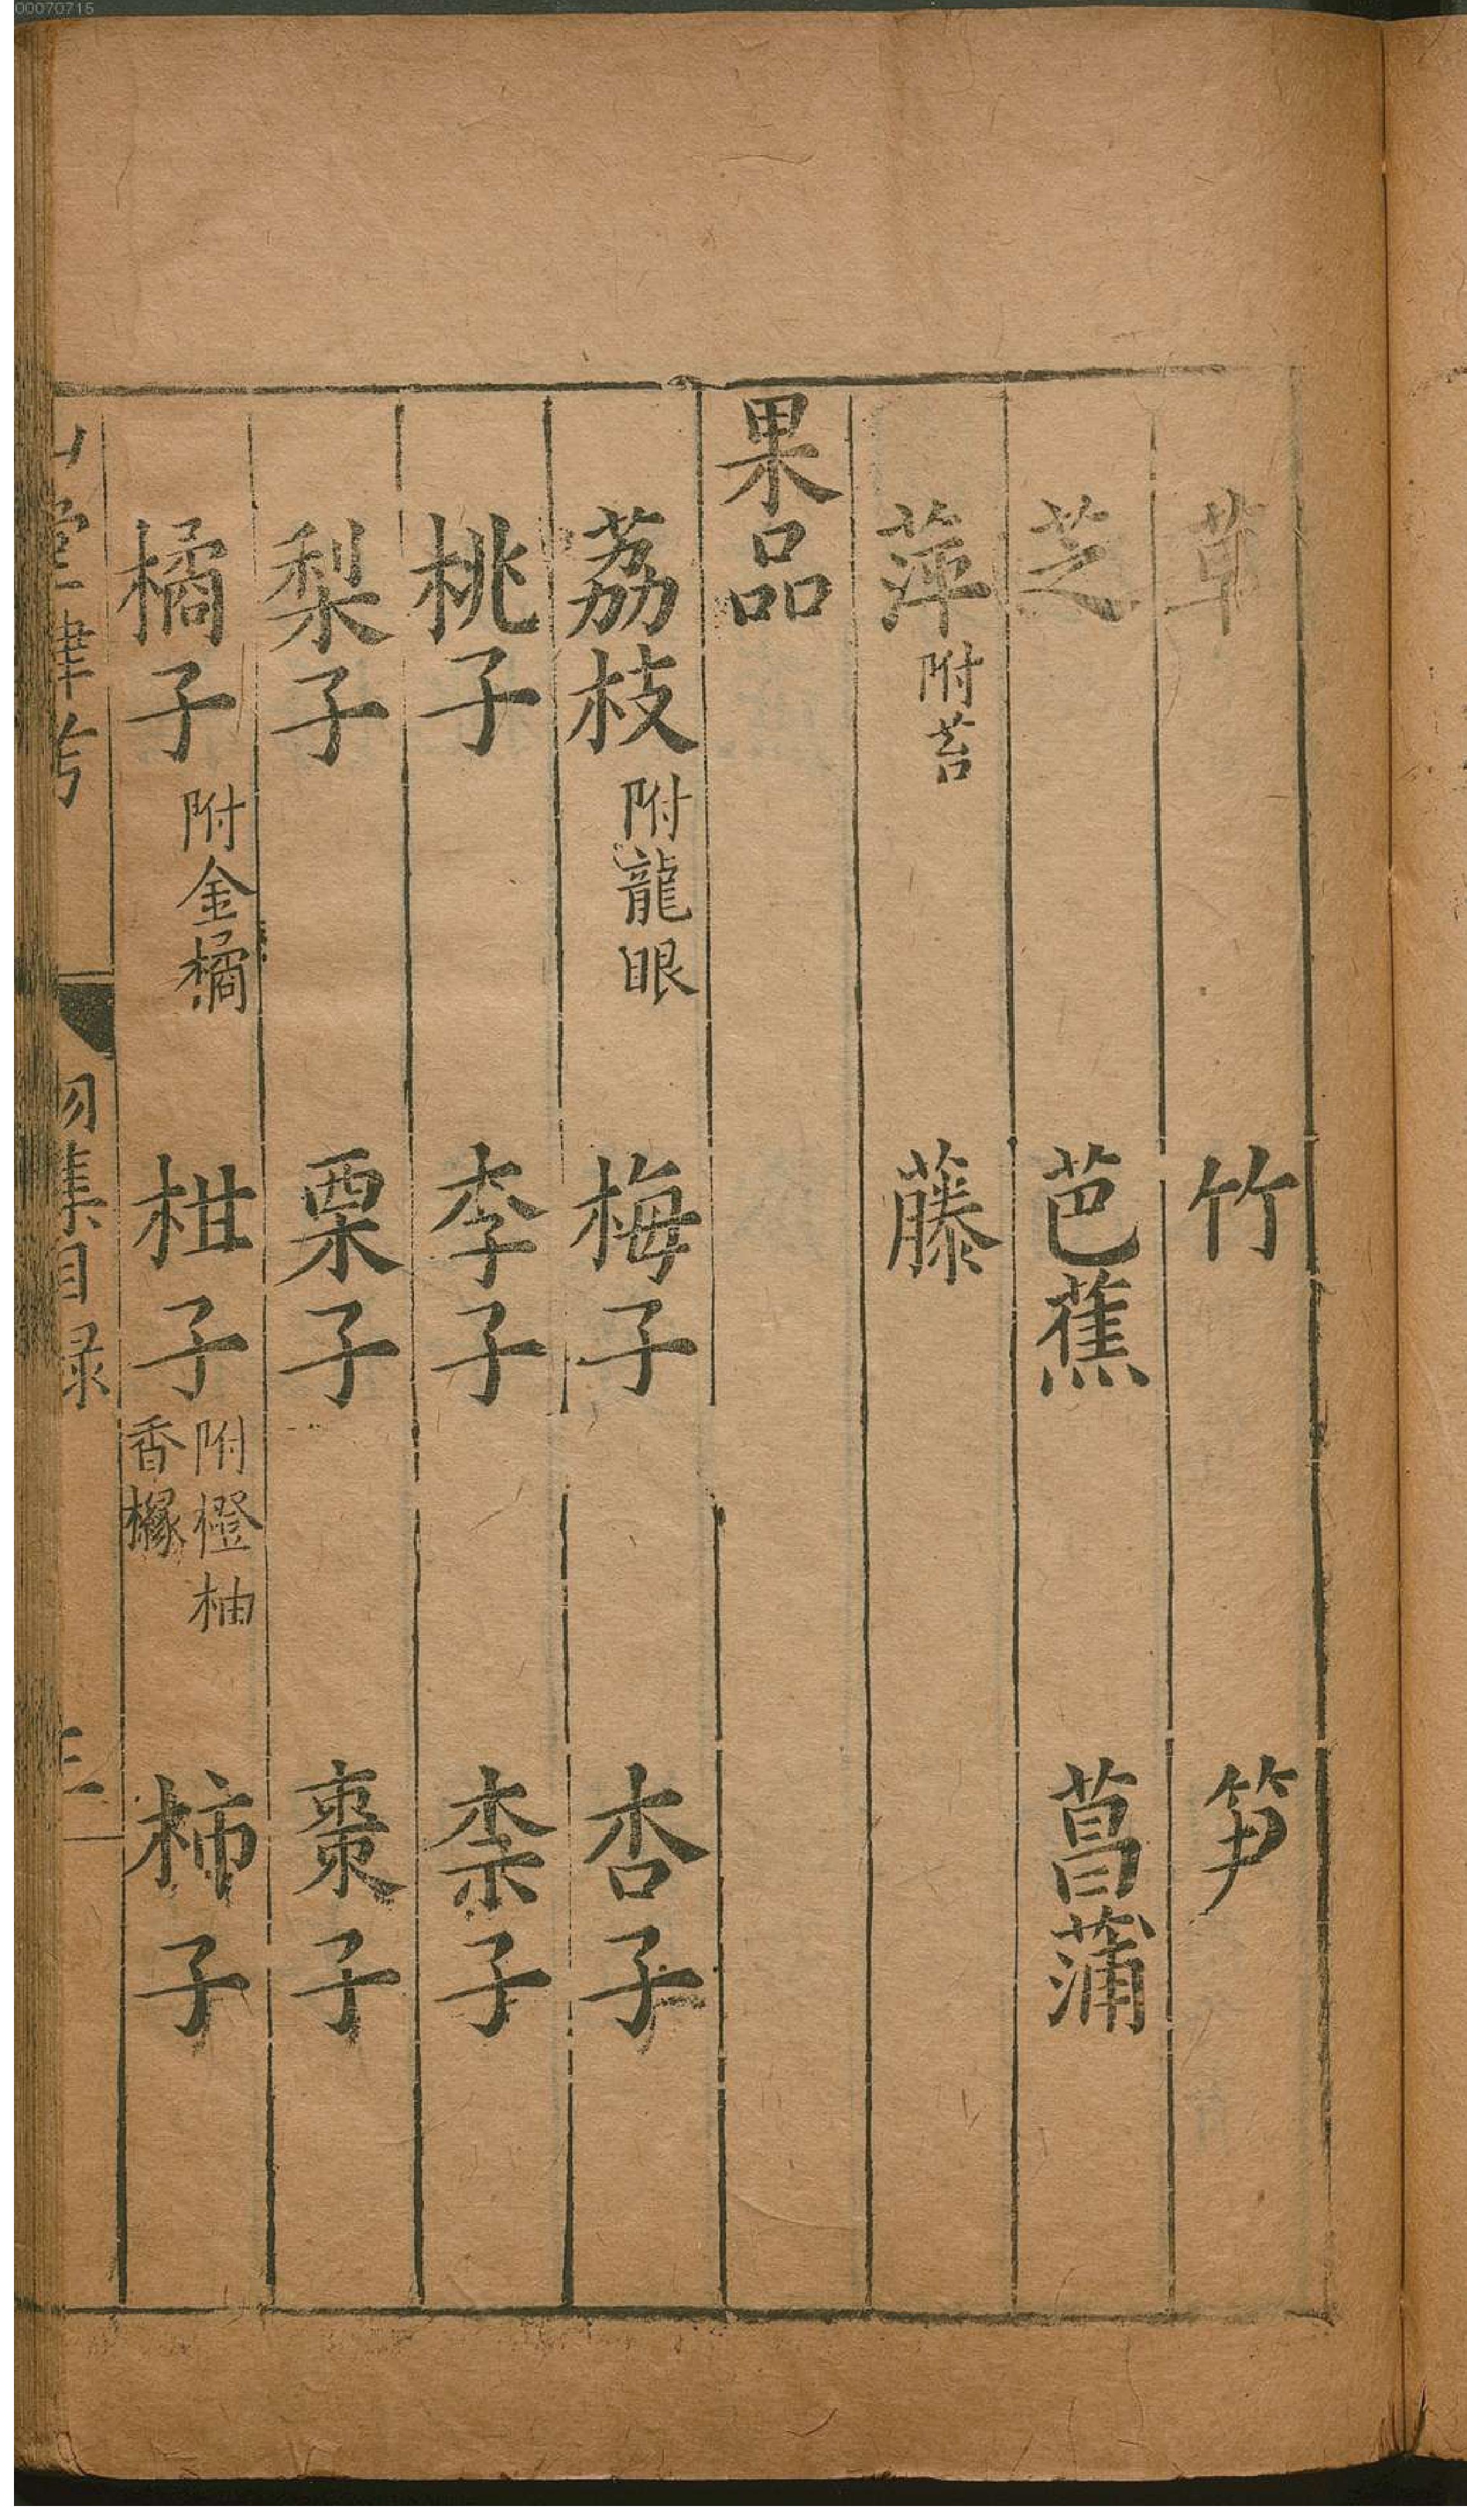 00070715
草 竹 笋
芝 芭蕉 菖蒲
萍附苔 藤
果品
荔枝附龍眼 梅子 杏子
桃子 李子 柰子
梨子 栗子 棗子
橘子附金橘 柑子附橙柚香櫞 柿子
山堂肆考 物集目錄